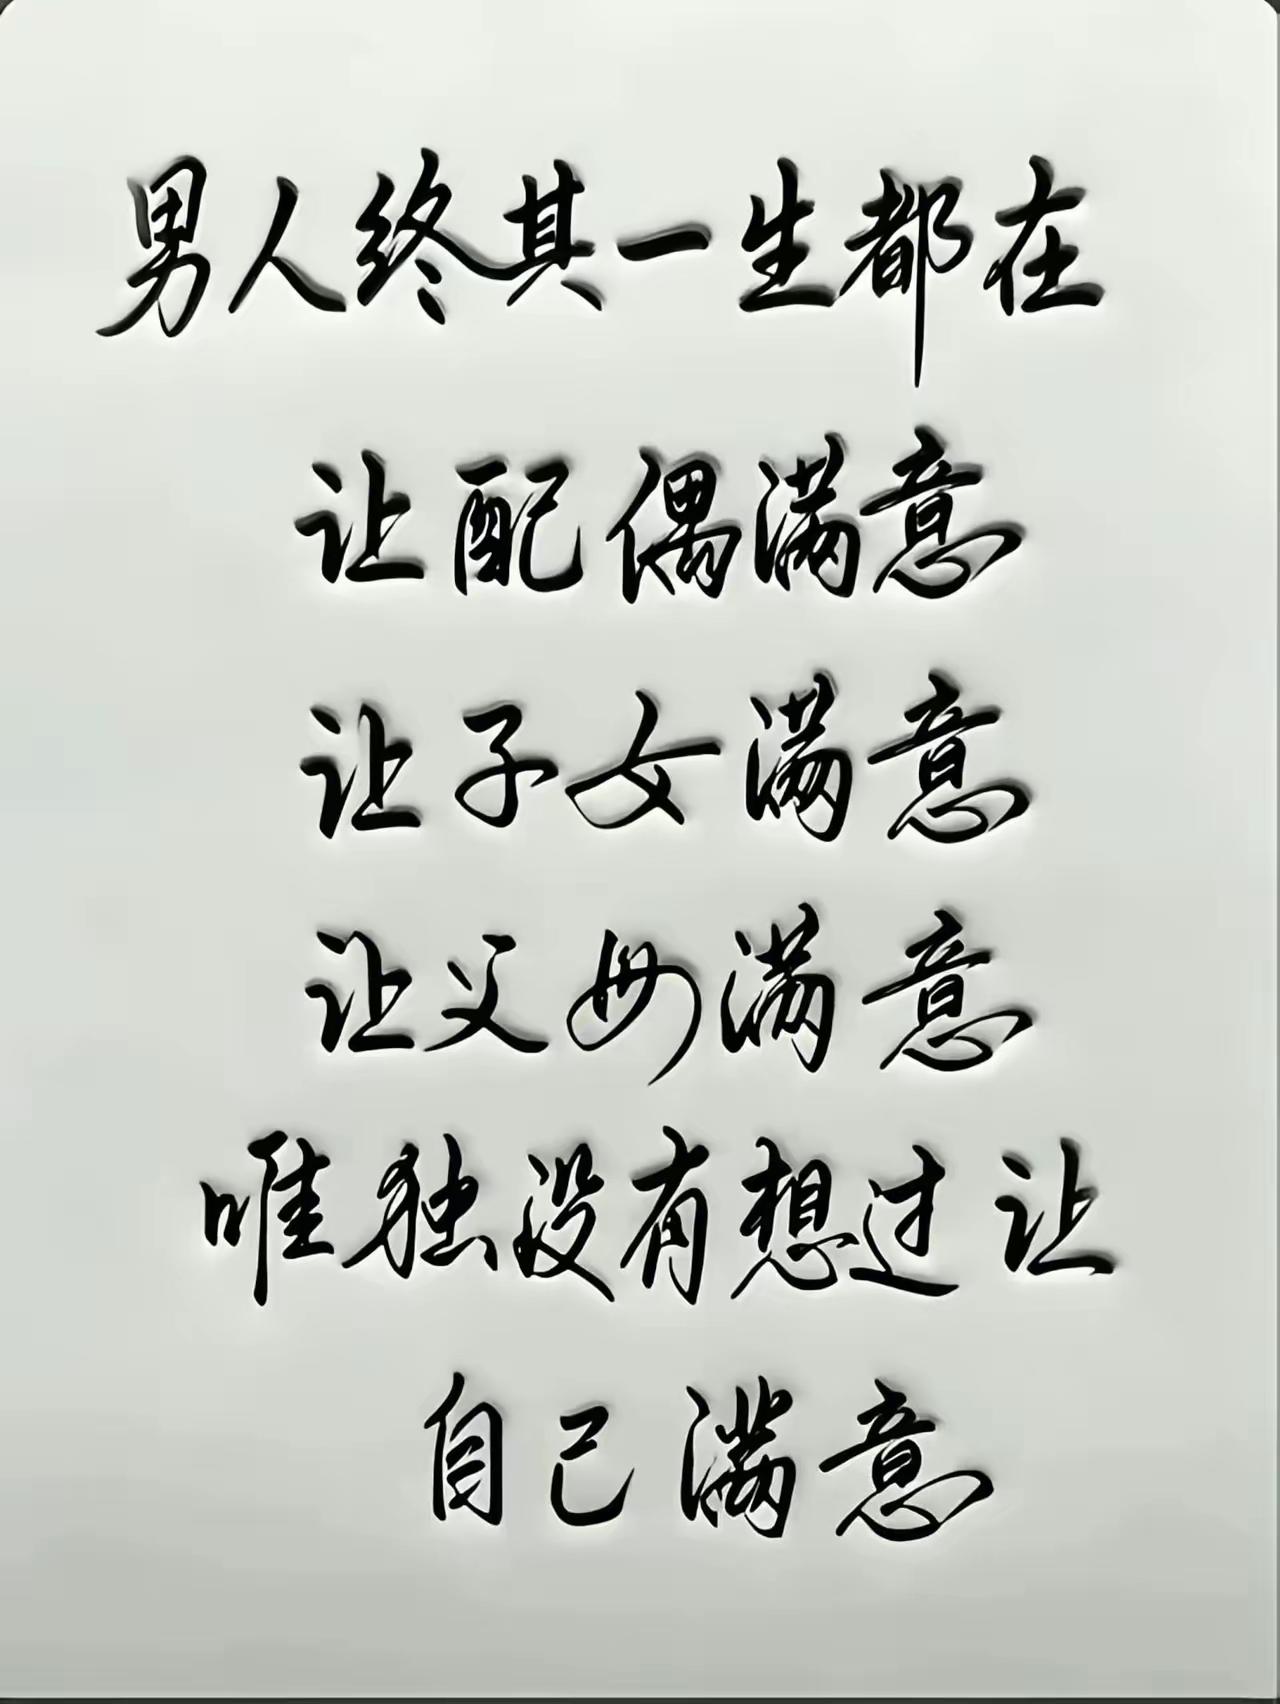 男人终其一生都在
让配偶满意
让子女满意
让父母满意
唯独没有想过让
自己满意